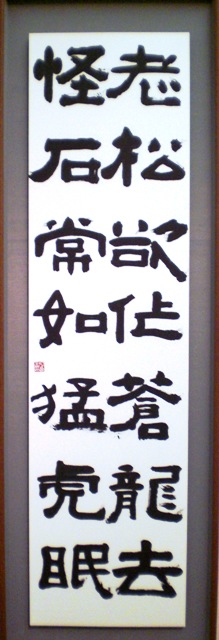 老松欲作蒼龍去
怪石常如猛虎眠